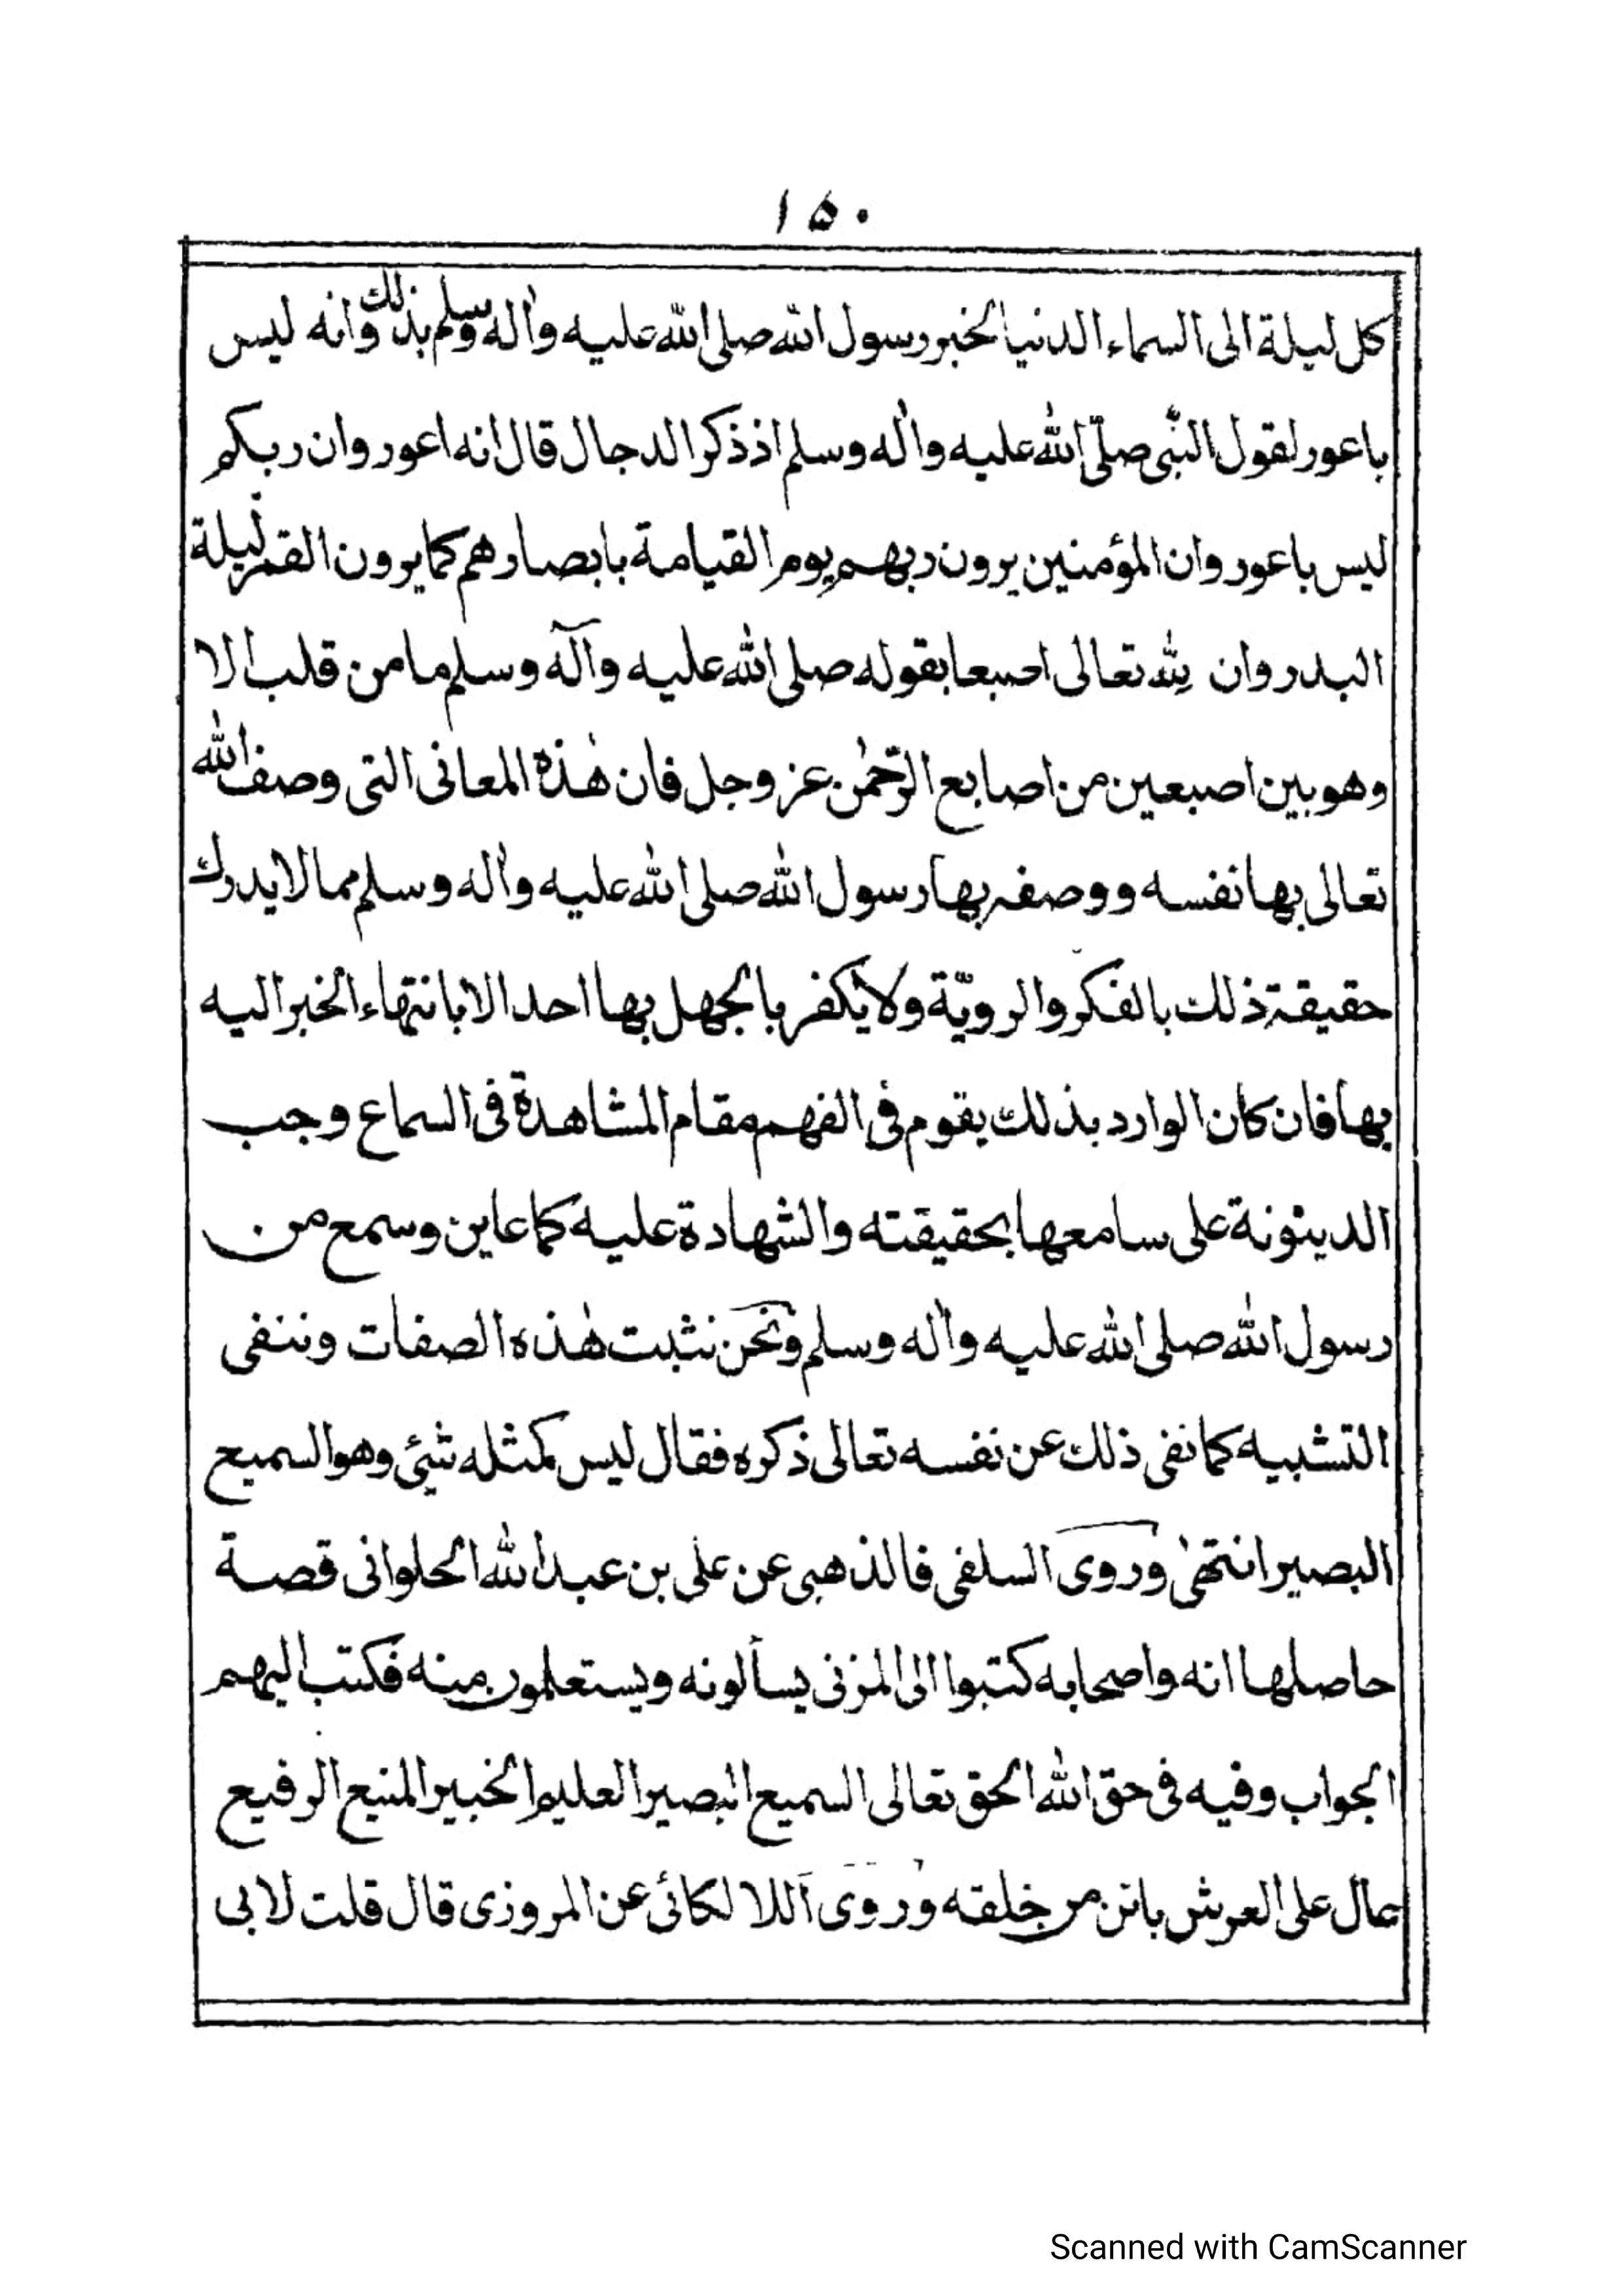 ١٥٠
كل ليلة الى السماء الدنيا لخبر رسول الله صلى الله عليه واٰله وسلم بذلك وانه ليس
باعور لقول النبي صلّى الله عليه واٰله وسلم اذ ذكر الدجال قال انه اعور وان ربكم
ليس باعور وان المؤمنين يرون ربهم يوم القيامة بابصارهم كما يرون القمر ليلة
البدر وان لله تعالى اصبعا بقوله صلى الله عليه وآله وسلم ما من قلب الا
وهو بين اصبعين من اصابع الرّحمٰن عز وجل فان هٰذه المعانى التى وصف الله
تعالى بها نفسه ووصفه بها رسول الله صلى الله عليه واٰله وسلم مما لا يدرك
حقيقة ذلك بالفكر والرويّة ولا يكفر بالجهل بها احد الا بانتهاء الخبر اليه
بها فان كان الوارد بذلك يقوم فى الفهم مقام المشاهدة فى السماع وجب
الدينونة على سامعها بحقيقته والشهادة عليه كما عاين وسمع من
رسول الله صلى الله عليه واٰله وسلم ونحن نثبت هٰذه الصفات وننفى
التشبيه كما نفى ذلك عن نفسه تعالى ذكره فقال ليس كمثله شئ وهو السميع
البصير انتهىٰ وروى السلفى فالذهبى عن على بن عبد الله الحلوانى قصة
حاصلها انه واصحابه كتبوا الى المزنى يسألونه ويستعلمون منه فكتب اليهم
الجواب وفيه فى حق الله الحق تعالى السميع البصير العليم الخبير المنيع الرفيع
عال على العرش بائن من خلقه وروى اللالكائى عن المروزى قال قلت لابى
Scanned with CamScanner